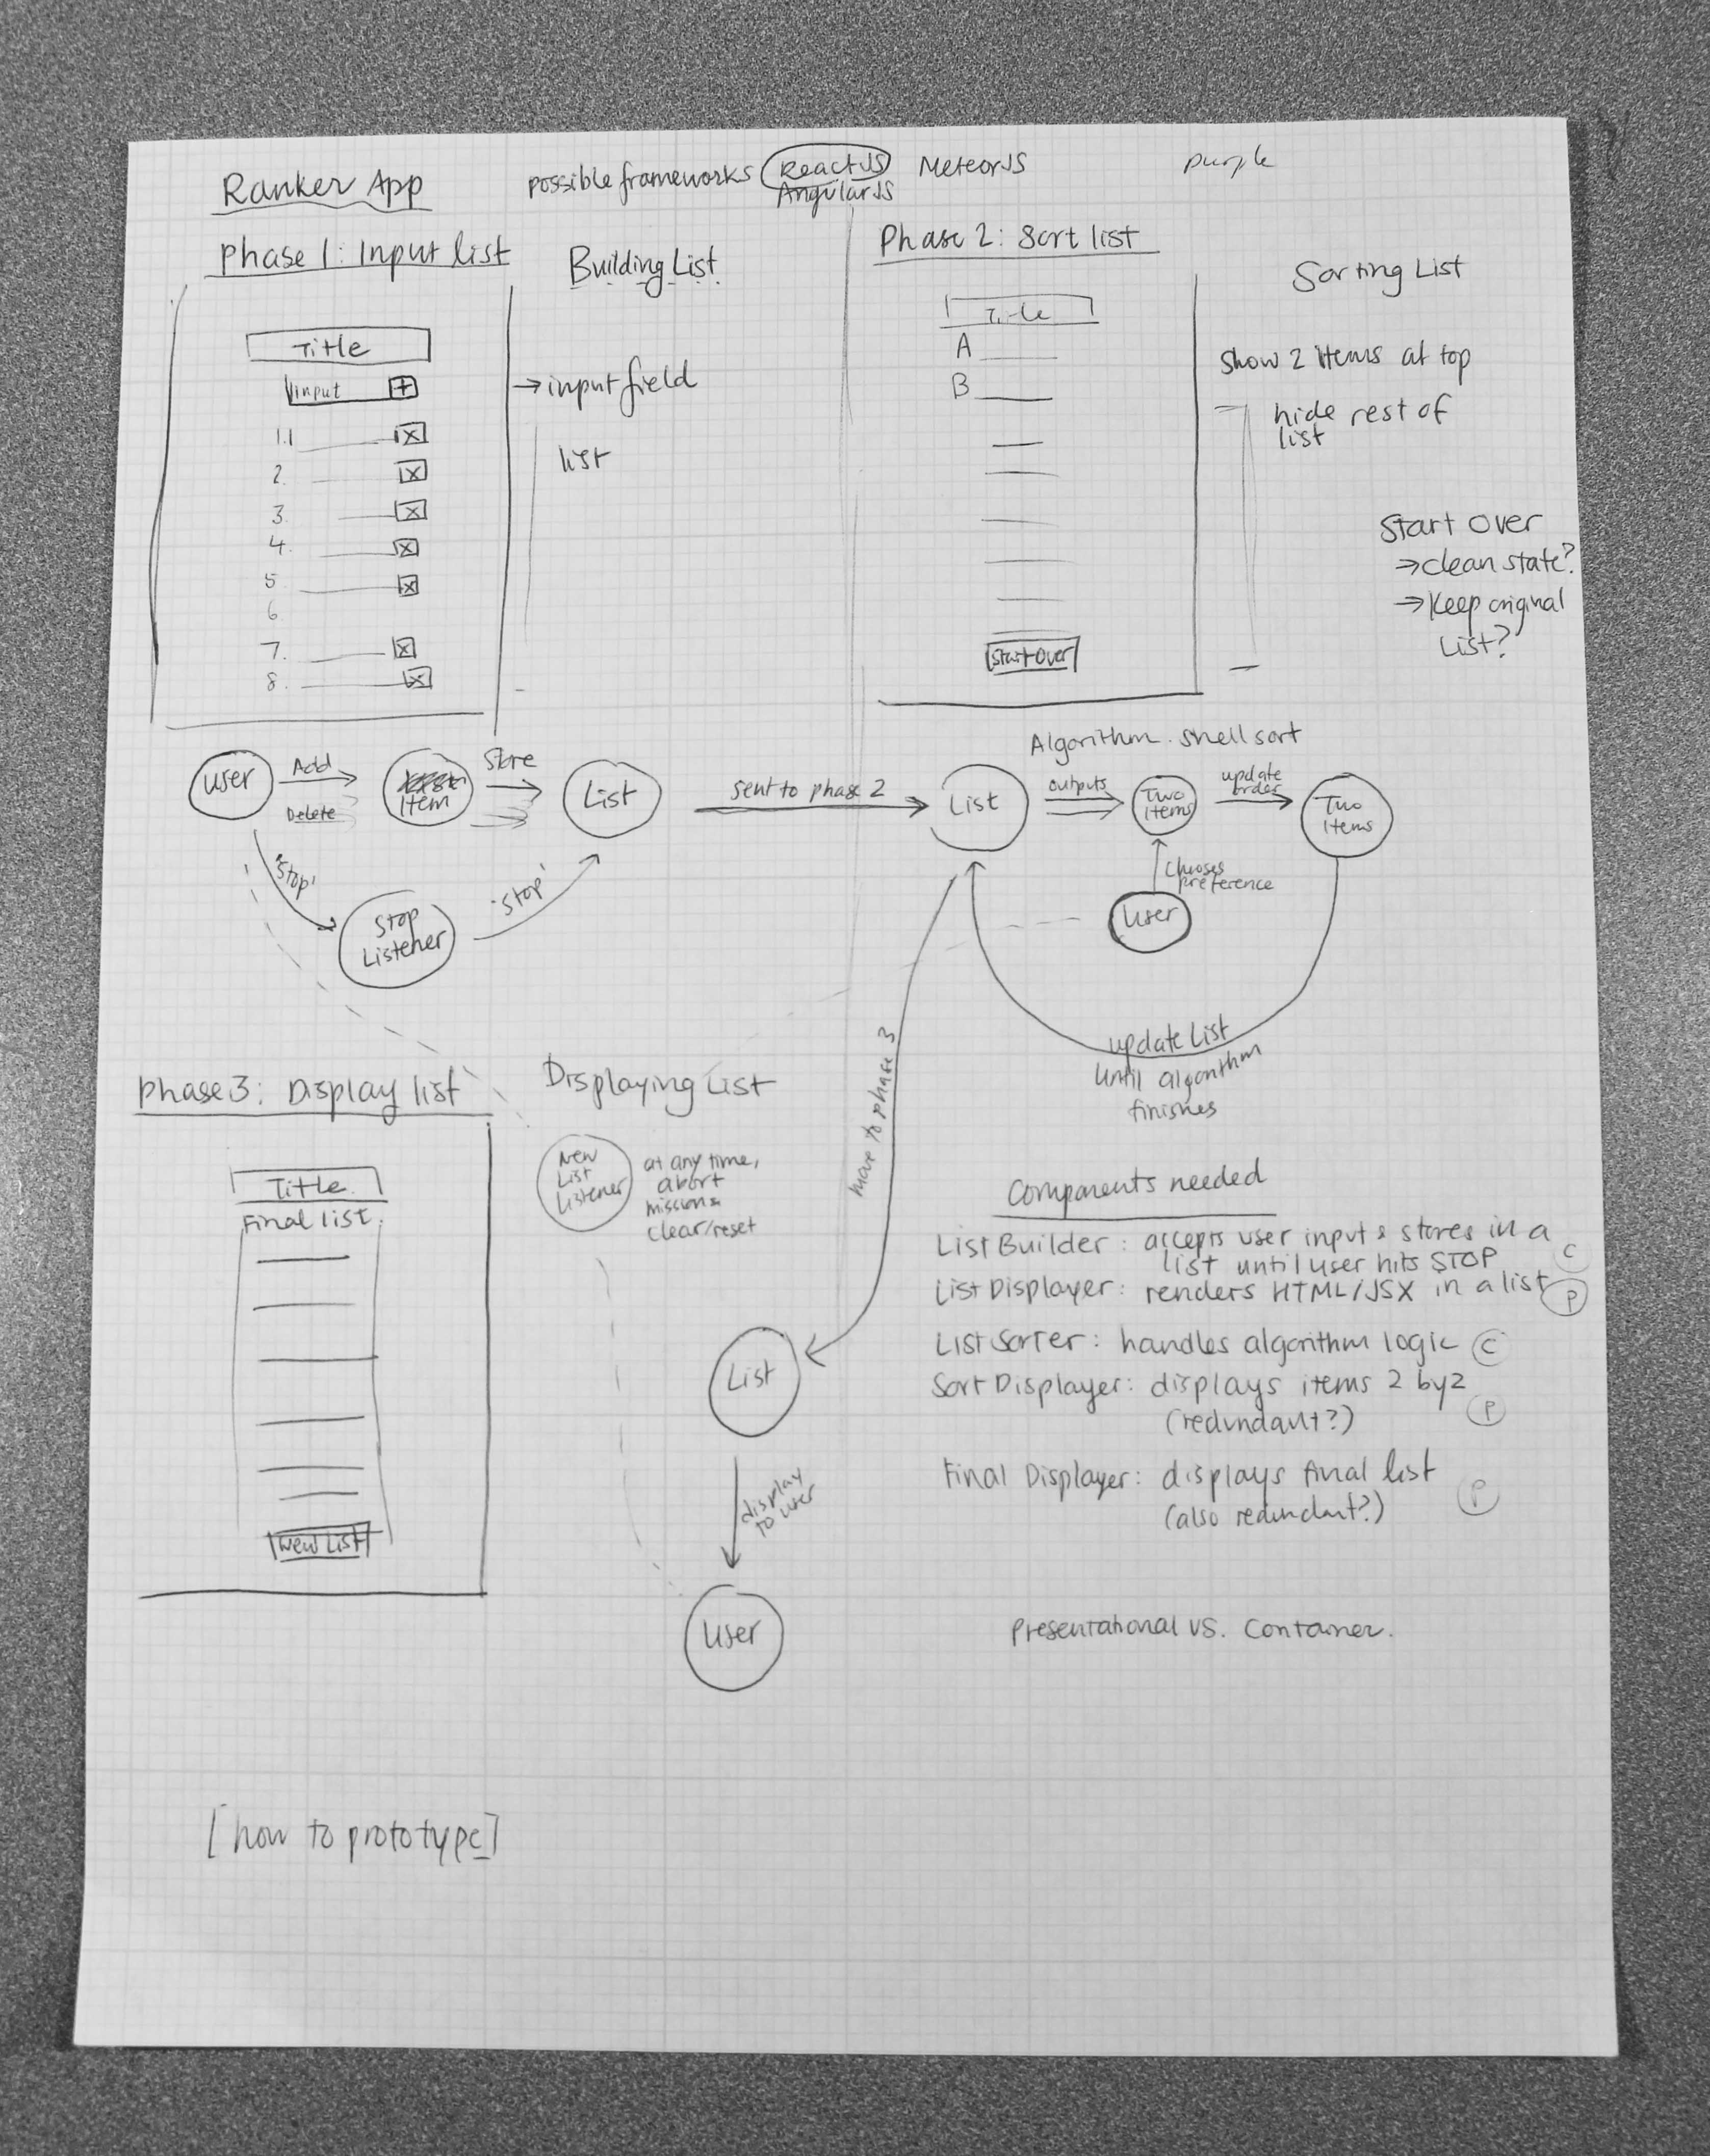 Ranker App
possible frameworks ReactJS MeteorJS
AngularJS
purple
Phase 1: Input list
Building List
Title
input +
→ input field
list
1. x
2. x
3. x
4. x
5. x
6
7. x
8. x
Phase 2: Sort list
Sorting List
Title
A
B
show 2 items at top
hide rest of
list
Start Over
→ clean state?
→ Keep original
List?
Start Over
User
Add
Delete
Item
Store
List
sent to phase 2
'Stop'
Stop
Listener
'Stop'
Algorithm. Shell sort
List
outputs
Two
Items
update
order
Two
Items
Chooses
preference
User
update List
until algorithm
finishes
move to phase 3
Phase 3: Display list
Displaying List
Title
Final list
New List
New
List
Listener
at any time,
abort
mission &
clear/reset
List
display
to user
User
Components needed
List Builder: accepts user input & stores in a
list until user hits STOP C
List Displayer: renders HTML/JSX in a list P
List Sorter: handles algorithm logic C
Sort Displayer: displays items 2 by 2
(redundant?) P
Final Displayer: displays final list
(also redundant?) P
Presentational vs. Container.
[how to prototype]